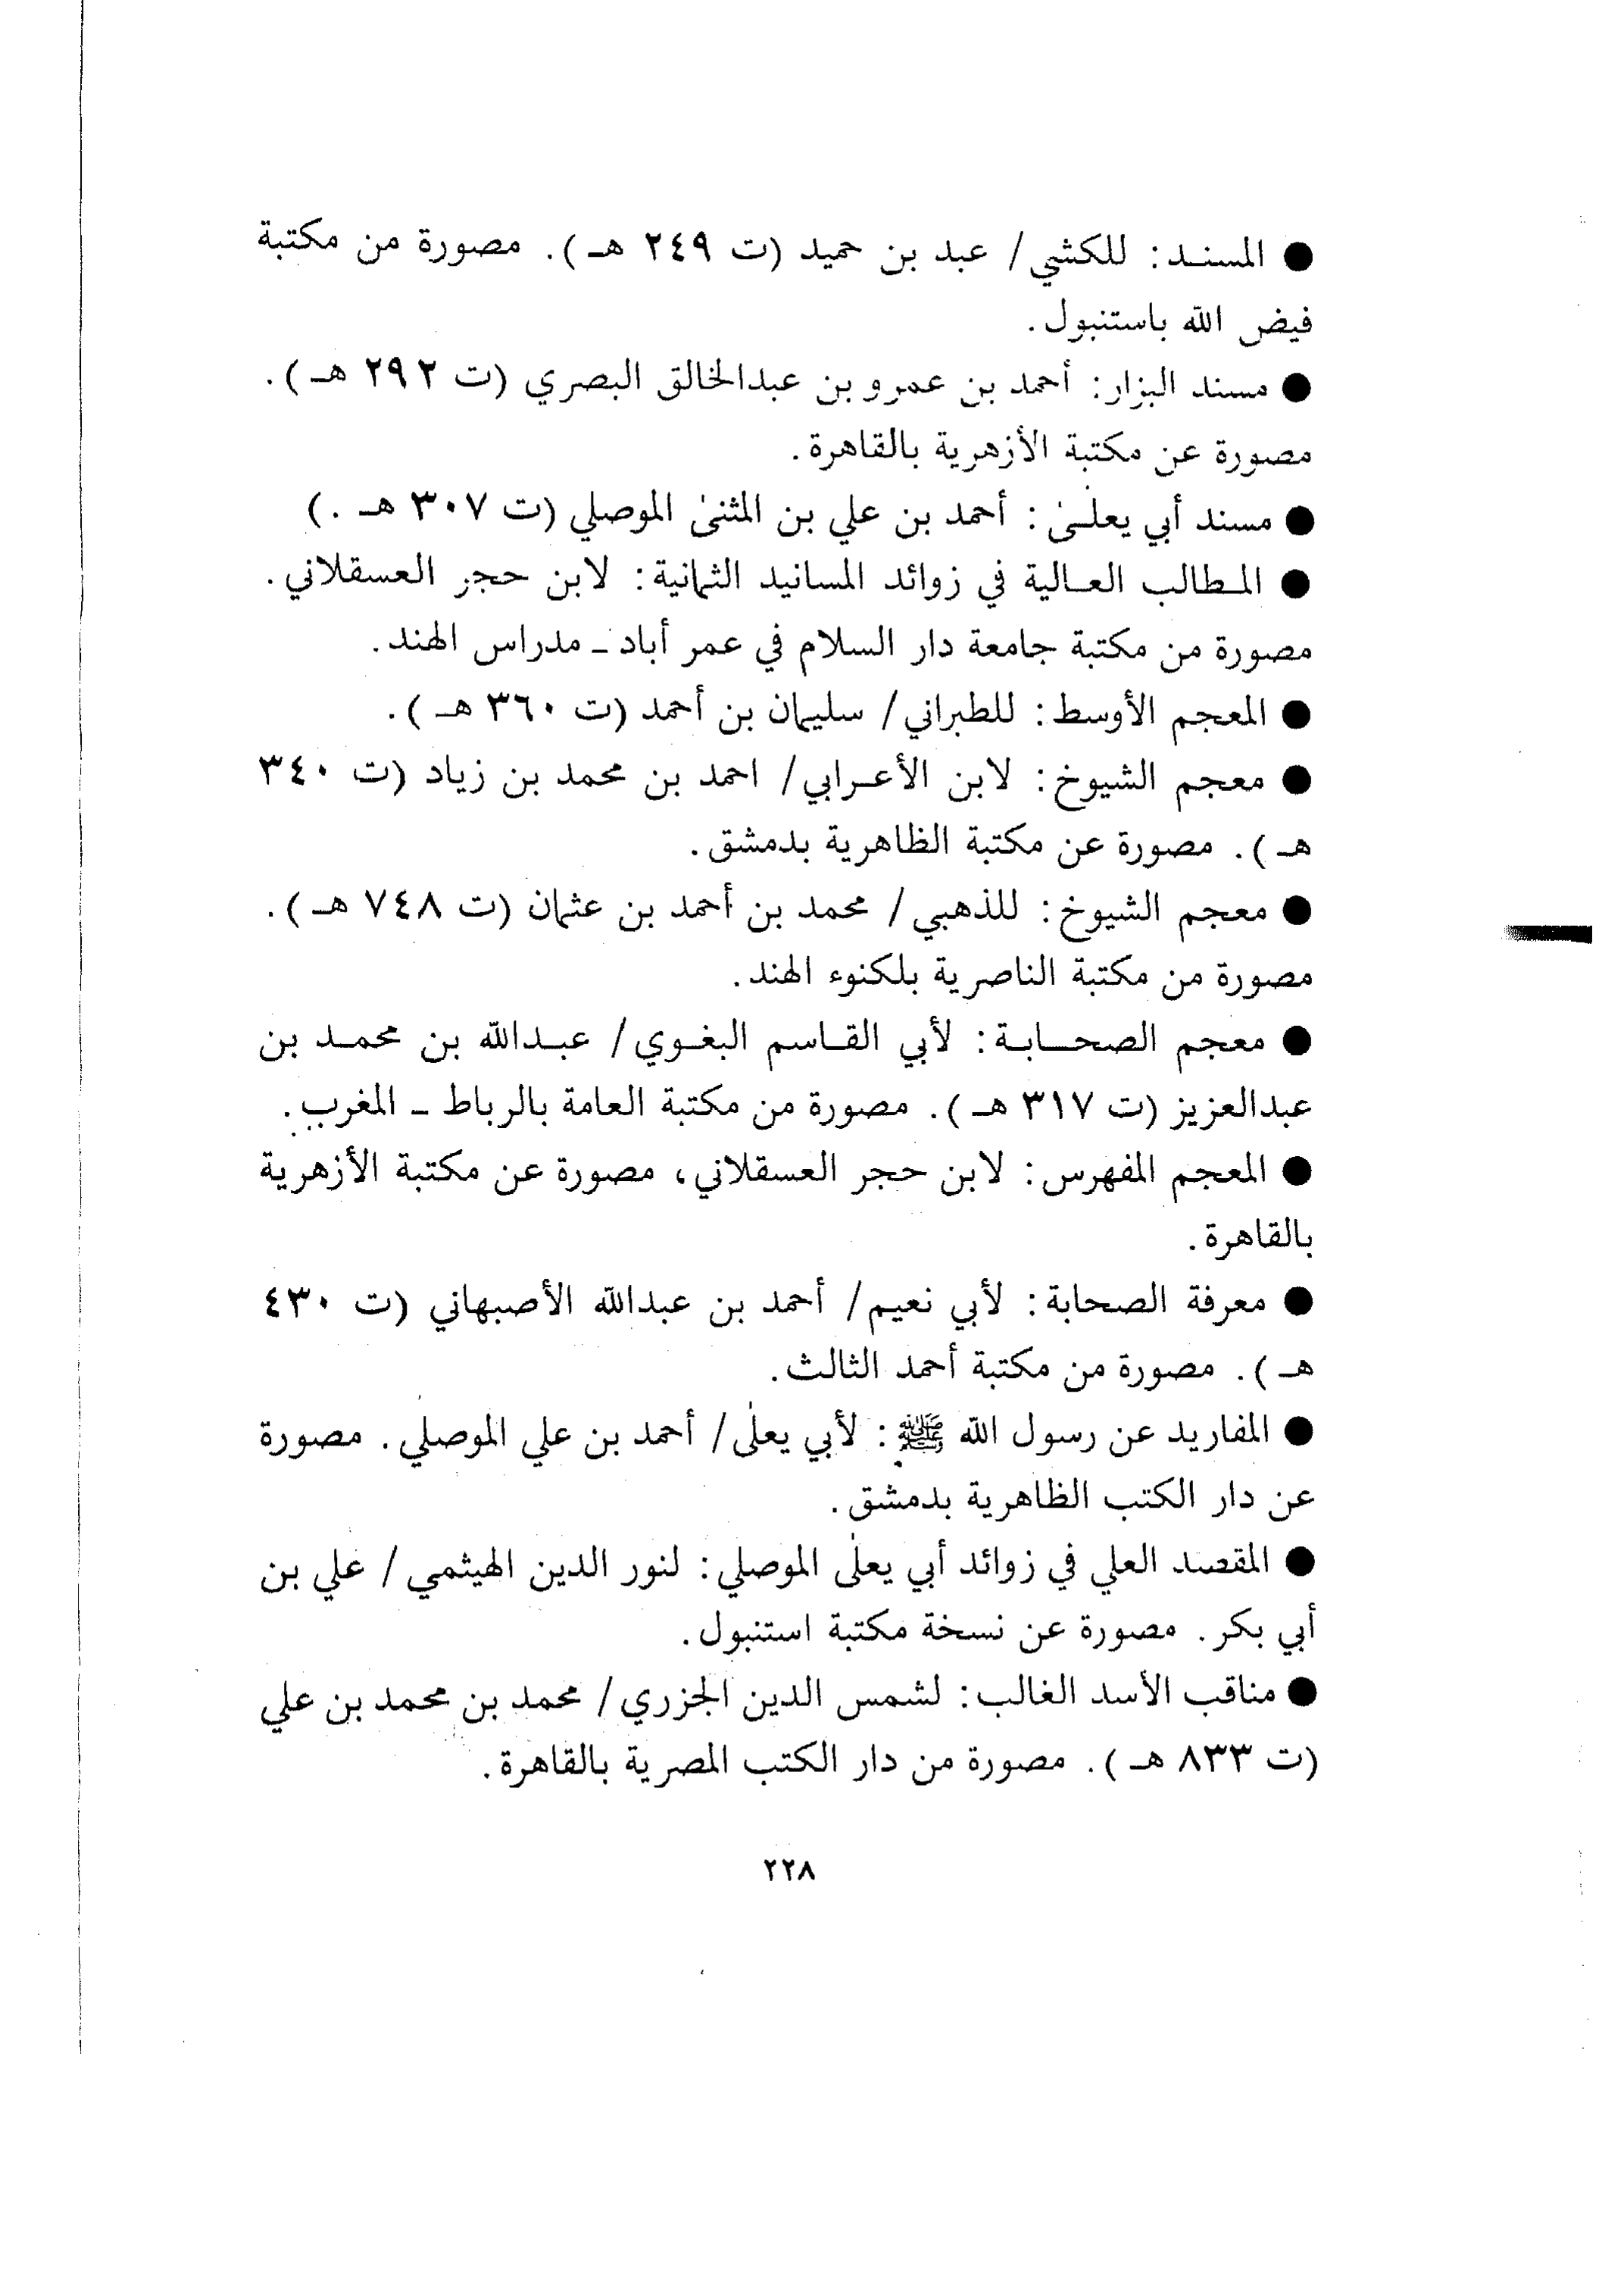 ● المسند: للكشي/ عبد بن حميد (ت ٢٤٩ هـ). مصورة من مكتبة
فيض الله باستنبول.
● مسند البزار: أحمد بن عمرو بن عبدالخالق البصري (ت ٢٩٢ هـ).
مصورة عن مكتبة الأزهرية بالقاهرة.
● مسند أبي يعلى: أحمد بن علي بن المثنى الموصلي (ت ٣٠٧ هـ.)
● المطالب العالية في زوائد المسانيد الثمانية: لابن حجر العسقلاني.
مصورة من مكتبة جامعة دار السلام في عمر أباد - مدراس الهند.
● المعجم الأوسط: للطبراني/ سليمان بن أحمد (ت ٣٦٠ هـ).
● معجم الشيوخ: لابن الأعرابي/ احمد بن محمد بن زياد (ت ٣٤٠
هـ). مصورة عن مكتبة الظاهرية بدمشق.
● معجم الشيوخ: للذهبي/ محمد بن أحمد بن عثمان (ت ٧٤٨ هـ).
مصورة من مكتبة الناصرية بلكنوء الهند.
● معجم الصحابة: لأبي القاسم البغوي/ عبدالله بن محمد بن
عبدالعزيز (ت ٣١٧ هـ). مصورة من مكتبة العامة بالرباط - المغرب.
● المعجم المفهرس: لابن حجر العسقلاني، مصورة عن مكتبة الأزهرية
بالقاهرة.
● معرفة الصحابة: لأبي نعيم/ أحمد بن عبدالله الأصبهاني (ت ٤٣٠
هـ). مصورة من مكتبة أحمد الثالث.
● المفاريد عن رسول الله ﷺ: لأبي يعلى/ أحمد بن علي الموصلي. مصورة
عن دار الكتب الظاهرية بدمشق.
● المقصد العلي في زوائد أبي يعلى الموصلي: لنور الدين الهيثمي/ علي بن
أبي بكر. مصورة عن نسخة مكتبة استنبول.
● مناقب الأسد الغالب: لشمس الدين الجزري/ محمد بن محمد بن علي
(ت ٨٣٣ هـ). مصورة من دار الكتب المصرية بالقاهرة.
٢٢٨